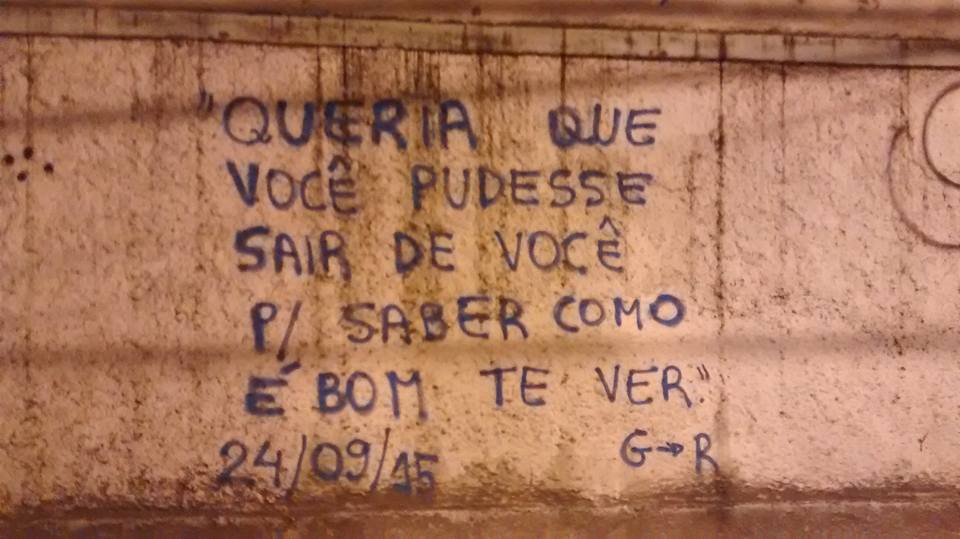 "QUERIA QUE
VOCÊ PUDESSE
SAIR DE VOCÊ
P/ SABER COMO
É BOM TE VER."
24/09/15 G→R